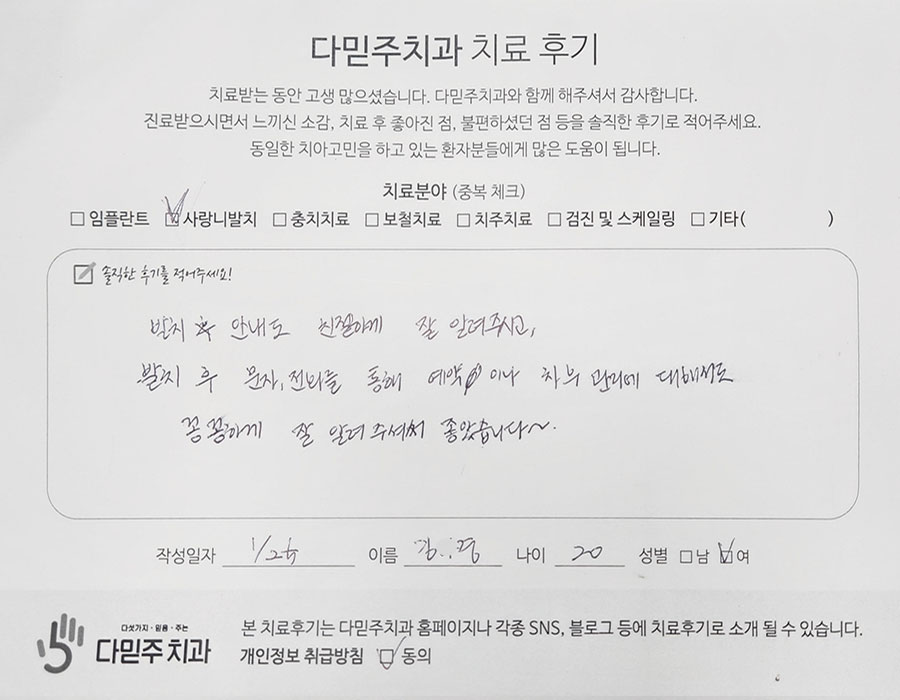 다믿주치과 치료 후기
치료받는 동안 고생 많으셨습니다. 다믿주치과와 함께 해주셔서 감사합니다.
진료받으시면서 느끼신 소감, 치료 후 좋아진 점, 불편하셨던 점 등을 솔직한 후기로 적어주세요.
동일한 치아고민을 하고 있는 환자분들에게 많은 도움이 됩니다.
치료분야 (중복 체크)
□ 임플란트 ☑ 사랑니발치 □ 충치치료 □ 보철치료 □ 치주치료 □ 검진 및 스케일링 □ 기타( )
솔직한 후기를 적어주세요!
발치 안내도 친절하게 잘 알려주시고,
발치 후 문자, 전화를 통해 예약이나 차후 관리에 대해서도
꼼꼼하게 잘 알려주셔서 좋았습니다~.
작성일자 이름 나이 20 성별 □ 남 ☑ 여
다섯가지·믿음·주는
다믿주치과
본 치료후기는 다믿주치과 홈페이지나 각종 SNS, 블로그 등에 치료후기로 소개 될 수 있습니다.
개인정보 취급방침 ☑ 동의